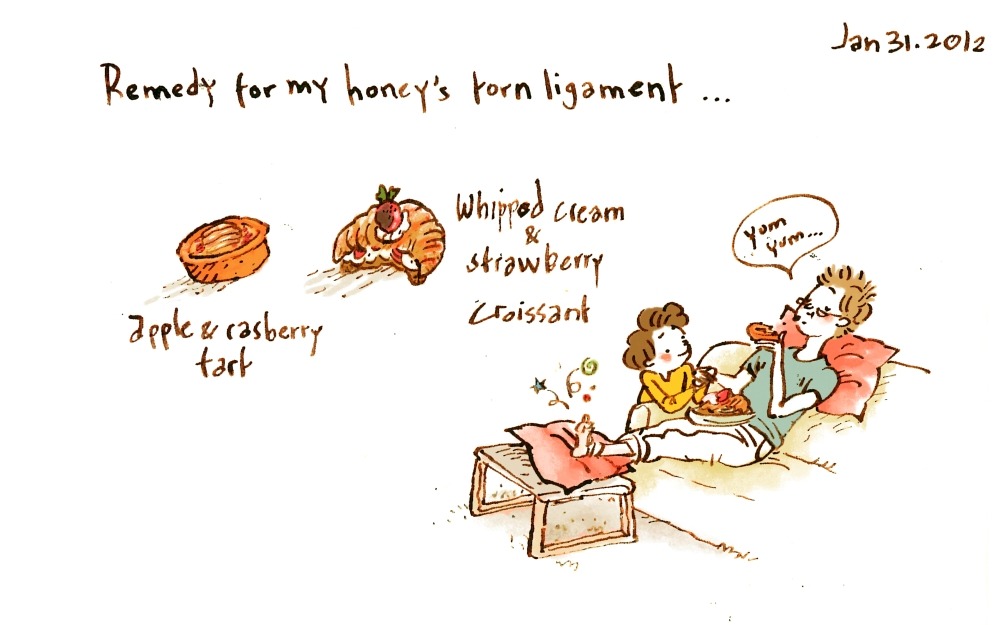 Jan 31. 2012
Remedy for my honey's torn ligament ...
Whipped cream
&
strawberry
croissant
apple & rasberry
tart
yum
yum...